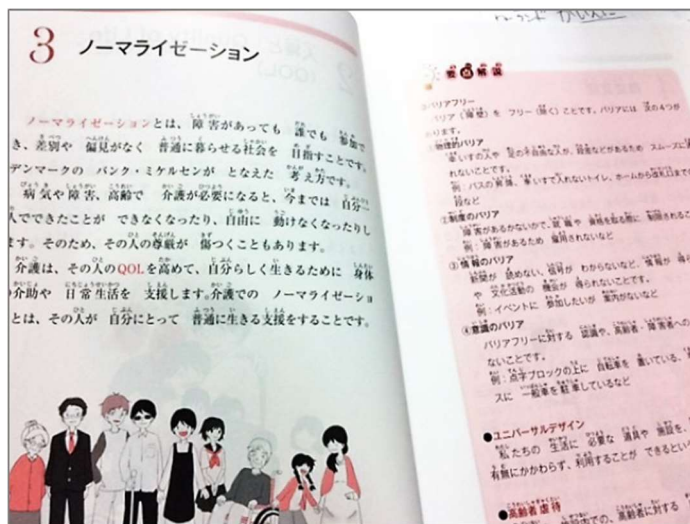 3 ノーマライゼーション
ノーマライゼーションとは、障害があっても 誰でも 参加で
き、差別や 偏見がなく 普通に暮らせる社会を 目指すことです。
デンマークの バンク・ミケルセンが となえた 考え方です。
病気や 障害、高齢で 介護が必要になると、今までは 自分一
人でできたことが できなくなったり、自由に 動けなくなったりし
ます。そのため、その人の尊厳が 傷つくこともあります。
介護は、その人のQOLを高めて、自分らしく 生きるために 身体
介助や 日常生活を 支援します。介護での ノーマライゼーショ
とは、その人が 自分にとって 普通に生きる支援をすることです。
要点解説
バリアフリー
バリア(障壁)を フリー(除く)ことです。バリアには 次の4つが
あります。
物理的バリア
車いすの人や 足の不自由な人が、段差などがあるため スムーズに
れないことです。
例:バスの 昇降、車いすで入れないトイレ、ホームから改札口まで
段など
②制度のバリア
障害があるかないかで、就職や 資格を取る際に 制限されるこ
例:障害があるため 雇用されないなど
③情報のバリア
新聞が 読めない、信号が わからないなど、情報が 得ら
や 文化活動の 機会が 得られないことです。
例:イベントに 参加したいが 案内がないなど
④意識のバリア
バリアフリーに対する 認識や、高齢者・障害者への
ないことです。
例:点字ブロックの上に 自転車を 置いている、
スに 一般車を 駐車しているなど
●ユニバーサルデザイン
私たちの 生活に 必要な 道具や 施設を、
有無にかかわらず、利用することが できるとい
●高齢者虐待
内での、高齢者に対する